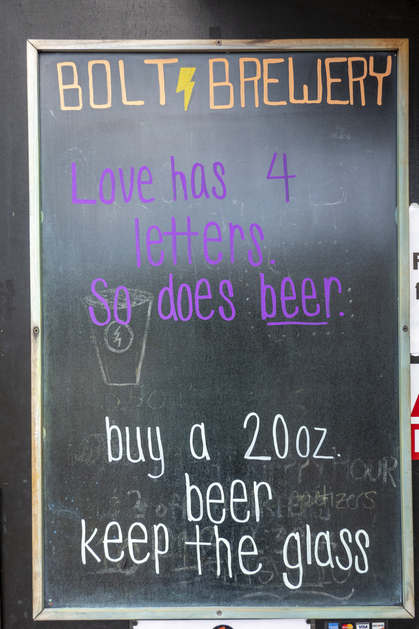 BOLT BREWERY
Love has 4
letters.
So does beer.
buy a 20oz.
beer
keep the glass
HOUR